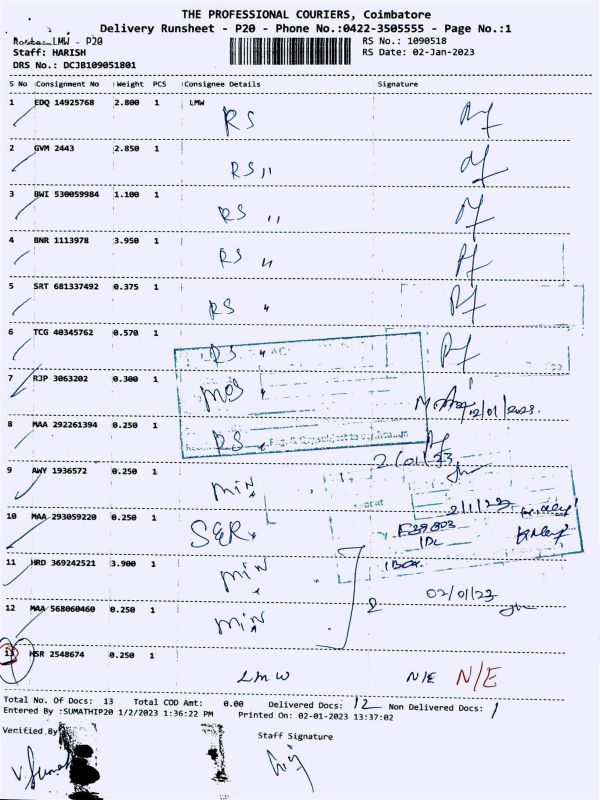 THE PROFESSIONAL COURIERS, Coimbatore
Delivery Runsheet - P20 - Phone No.:0422-3505555 - Page No.:1
Route: LMW - P20
RS No.: 1090518
Staff: HARISH
RS Date: 02-Jan-2023
DRS No.: DCJB109051801
S No Consignment No Weight PCS Consignee Details Signature
1 EDQ 14925768 2.800 1 LMW
RS
2 GVM 2443 2.850 1
RS "
3 BWI 530059984 1.100 1
RS "
4 BNR 1113978 3.950 1
RS "
5 SRT 681337492 0.375 1
RS "
6 TCG 40345762 0.570 1
RS "
7 RJP 3063202 0.300 1
MOS
8 MAA 292261394 0.250 1
RS
2/01/23
9 AWY 1936572 0.250 1
MIN
2/1/23
10 MAA 293059220 0.250 1
SER
11 HRD 369242521 3.900 1
MIN
1 Box
02/01/23
12 MAA 568060460 0.250 1
MIN
13 HSR 2548674 0.250 1
LMW N/E N/E
Total No. Of Docs: 13 Total COD Amt: 0.00 Delivered Docs: 12 Non Delivered Docs: 1
Entered By :SUMATHIP20 1/2/2023 1:36:22 PM Printed On: 02-01-2023 13:37:02
Verified By
Staff Signature